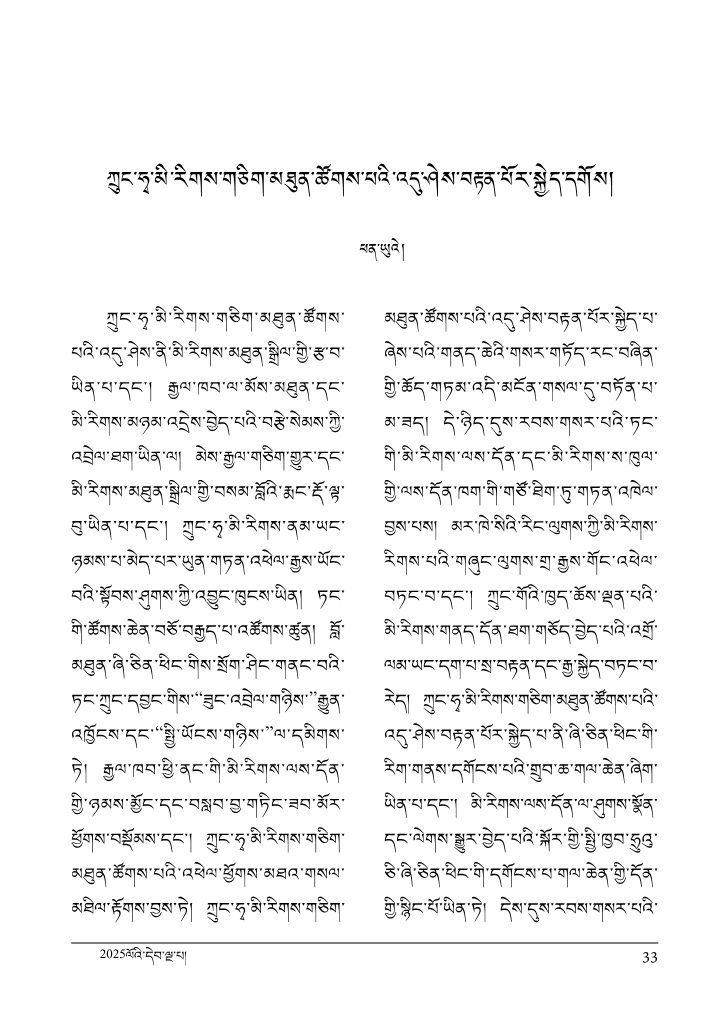 ཀྲུང་ཧྭ་མི་རིགས་གཅིག་མཐུན་ཚོགས་པའི་འདུ་ཤེས་བརྟན་པོར་སྐྱེད་དགོས།
ཕན་ཡུའེ།
ཀྲུང་ཧྭ་མི་རིགས་གཅིག་མཐུན་ཚོགས་
པའི་འདུ་ཤེས་ནི་མི་རིགས་མཐུན་སྒྲིལ་གྱི་རྩ་བ་
ཡིན་པ་དང་། རྒྱལ་ཁབ་ལ་མོས་མཐུན་དང་
མི་རིགས་མཉམ་འདྲེས་བྱེད་པའི་བརྩེ་སེམས་ཀྱི་
འབྲེལ་ཐག་ཡིན་ལ། མེས་རྒྱལ་གཅིག་གྱུར་དང་
མི་རིགས་མཐུན་སྒྲིལ་གྱི་བསམ་བློའི་རྨང་རྡོ་ལྟ་
བུ་ཡིན་པ་དང་། ཀྲུང་ཧྭ་མི་རིགས་ནམ་ཡང་
ཉམས་པ་མེད་པར་ཡུན་གཏན་འཕེལ་རྒྱས་ཡོང་
བའི་སྟོབས་ཤུགས་ཀྱི་འབྱུང་ཁུངས་ཡིན། ཏང་
གི་ཚོགས་ཆེན་བཅོ་བརྒྱད་པ་འཚོགས་ཚུན། བློ་
མཐུན་ཞི་ཅིན་ཕིང་གིས་སྲོག་ཤིང་གནང་བའི་
ཏང་ཀྲུང་དབྱང་གིས་“ཟུང་འབྲེལ་གཉིས་”རྒྱུན་
འཁྱོངས་དང་“སྤྱི་ཡོངས་གཉིས་”ལ་དམིགས་
ཏེ། རྒྱལ་ཁབ་ཕྱི་ནང་གི་མི་རིགས་ལས་དོན་
གྱི་ཉམས་མྱོང་དང་བསླབ་བྱ་གཏིང་ཟབ་མོར་
ཕྱོགས་བསྡོམས་དང་། ཀྲུང་ཧྭ་མི་རིགས་གཅིག་
མཐུན་ཚོགས་པའི་འཕེལ་ཕྱོགས་མཐའ་གསལ་
མཐིལ་རྟོགས་བྱས་ཏེ། ཀྲུང་ཧྭ་མི་རིགས་གཅིག་
མཐུན་ཚོགས་པའི་འདུ་ཤེས་བརྟན་པོར་སྐྱེད་པ་
ཞེས་པའི་གནད་ཆེའི་གསར་གཏོད་རང་བཞིན་
གྱི་ཆོད་གཏམ་འདི་མངོན་གསལ་དུ་བཏོན་པ་
མ་ཟད། དེ་ཉིད་དུས་རབས་གསར་པའི་ཏང་
གི་མི་རིགས་ལས་དོན་དང་མི་རིགས་ས་ཁུལ་
གྱི་ལས་དོན་ཁག་གི་གཙོ་ཐིག་ཏུ་གཏན་འཁེལ་
བྱས་པས། མར་ཁེ་སིའི་རིང་ལུགས་ཀྱི་མི་རིགས་
རིགས་པའི་གཞུང་ལུགས་གྲ་རྒྱས་གོང་འཕེལ་
བཏང་བ་དང་། ཀྲུང་གོའི་ཁྱད་ཆོས་ལྡན་པའི་
མི་རིགས་གནད་དོན་ཐག་གཅོད་བྱེད་པའི་འགྲོ་
ལམ་ཡང་དག་པ་སྲ་བརྟན་དང་རྒྱ་སྐྱེད་བཏང་བ་
རེད། ཀྲུང་ཧྭ་མི་རིགས་གཅིག་མཐུན་ཚོགས་པའི་
འདུ་ཤེས་བརྟན་པོར་སྐྱེད་པ་ནི་ཞི་ཅིན་ཕིང་གི་
རིག་གནས་དགོངས་པའི་གྲུབ་ཆ་གལ་ཆེན་ཞིག་
ཡིན་པ་དང་། མི་རིགས་ལས་དོན་ལ་ཤུགས་སྣོན་
དང་ལེགས་སྒྱུར་བྱེད་པའི་སྐོར་གྱི་སྤྱི་ཁྱབ་ཧྲུའུ་
ཅི་ཞི་ཅིན་ཕིང་གི་དགོངས་པ་གལ་ཆེན་གྱི་དོན་
གྱི་སྙིང་པོ་ཡིན་ཏེ། དེས་དུས་རབས་གསར་པའི་
2025ལོའི་དེབ་ལྔ་པ།
33